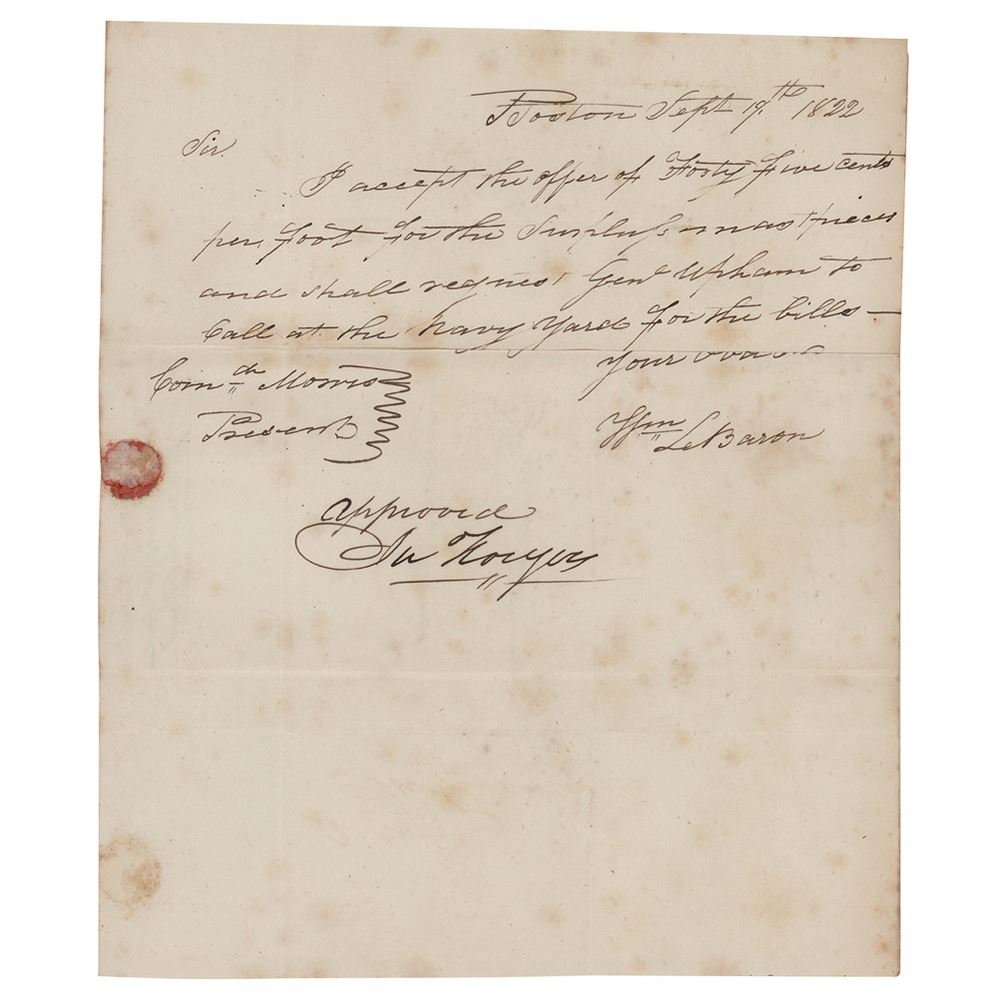 Boston Sept 19th 1822
Sir.
I accept the offer of Forty five cents
per. foot for the Surpluss mast pieces
and shall request Genl Upham to
Call at the Navy Yard for the bills —
Your
Comdr Morris
Present
Wm LeBaron
approved